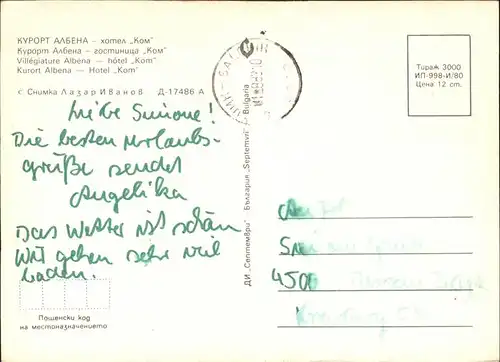 КУРОРТ АЛБЕНА – хотел „Ком"
Курорт Албена – гостиница „Ком"
Villégiature Albena — hôtel „Kom"
Kurort Albena — Hotel „Kom"
с Снимка Лазар Иванов Д-17486 А
Liebe Simone!
Die besten Urlaubs-
grüße sendet
Angelika
Das Wetter ist schön
Wir gehen sehr viel
baden.
Пощенски код
на местоназначението
ДИ „Септември" България „Septemvri" Bulgaria
Тираж 3000
ИП-998-И/80
Цена 12 ст.
4500